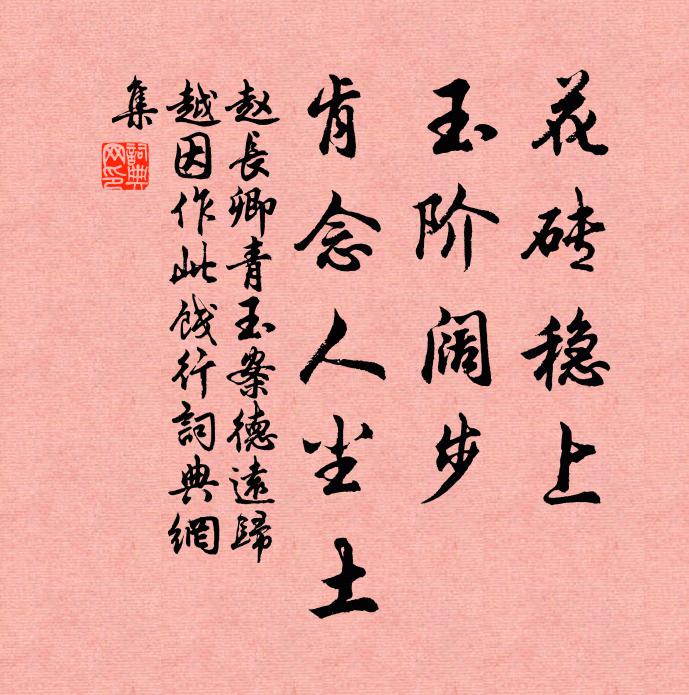 花砖稳上
玉阶阔步
肯念人尘土
赵長卿青玉案德遠歸
越因作此餞行詞典網
集
詞典
网印